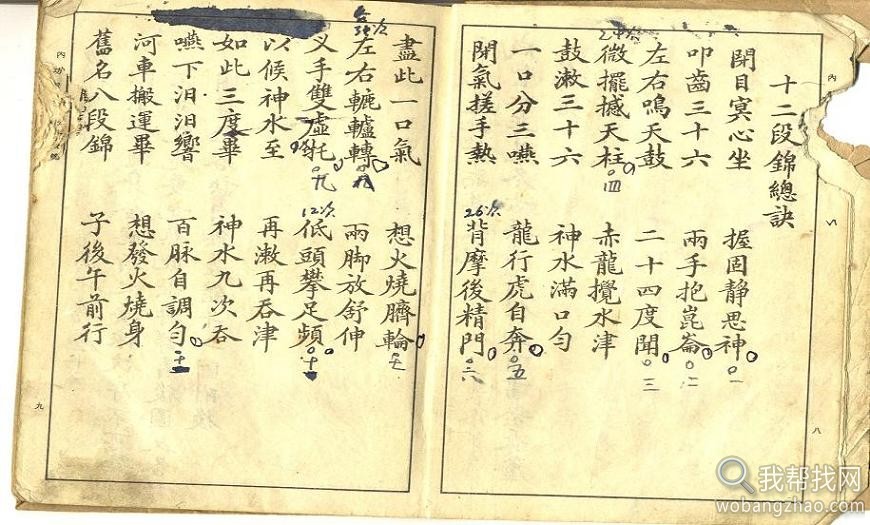 內
十二段錦總訣
閉目冥心坐 握固靜思神 一
叩齒三十六 兩手抱崑崙 二
左右鳴天鼓 二十四度聞 三
微擺撼天柱 四 赤龍攪水津
鼓漱三十六 神水滿口勻
一口分三嚥 龍行虎自奔 五
閉氣搓手熱 26次 背摩後精門 六
八
盡此一口氣 想火燒臍輪 七
左右轆轤轉 兩脚放舒伸
叉手雙虛托 九 12次 低頭攀足頻 十
以候神水至 再漱再吞津
如此三度畢 神水九次吞
嚥下汩汩響 百脉自調勻
河車搬運畢 想發火燒身
舊名八段錦 子後午前行
內功
九
我帮找网
wobangzhao.com